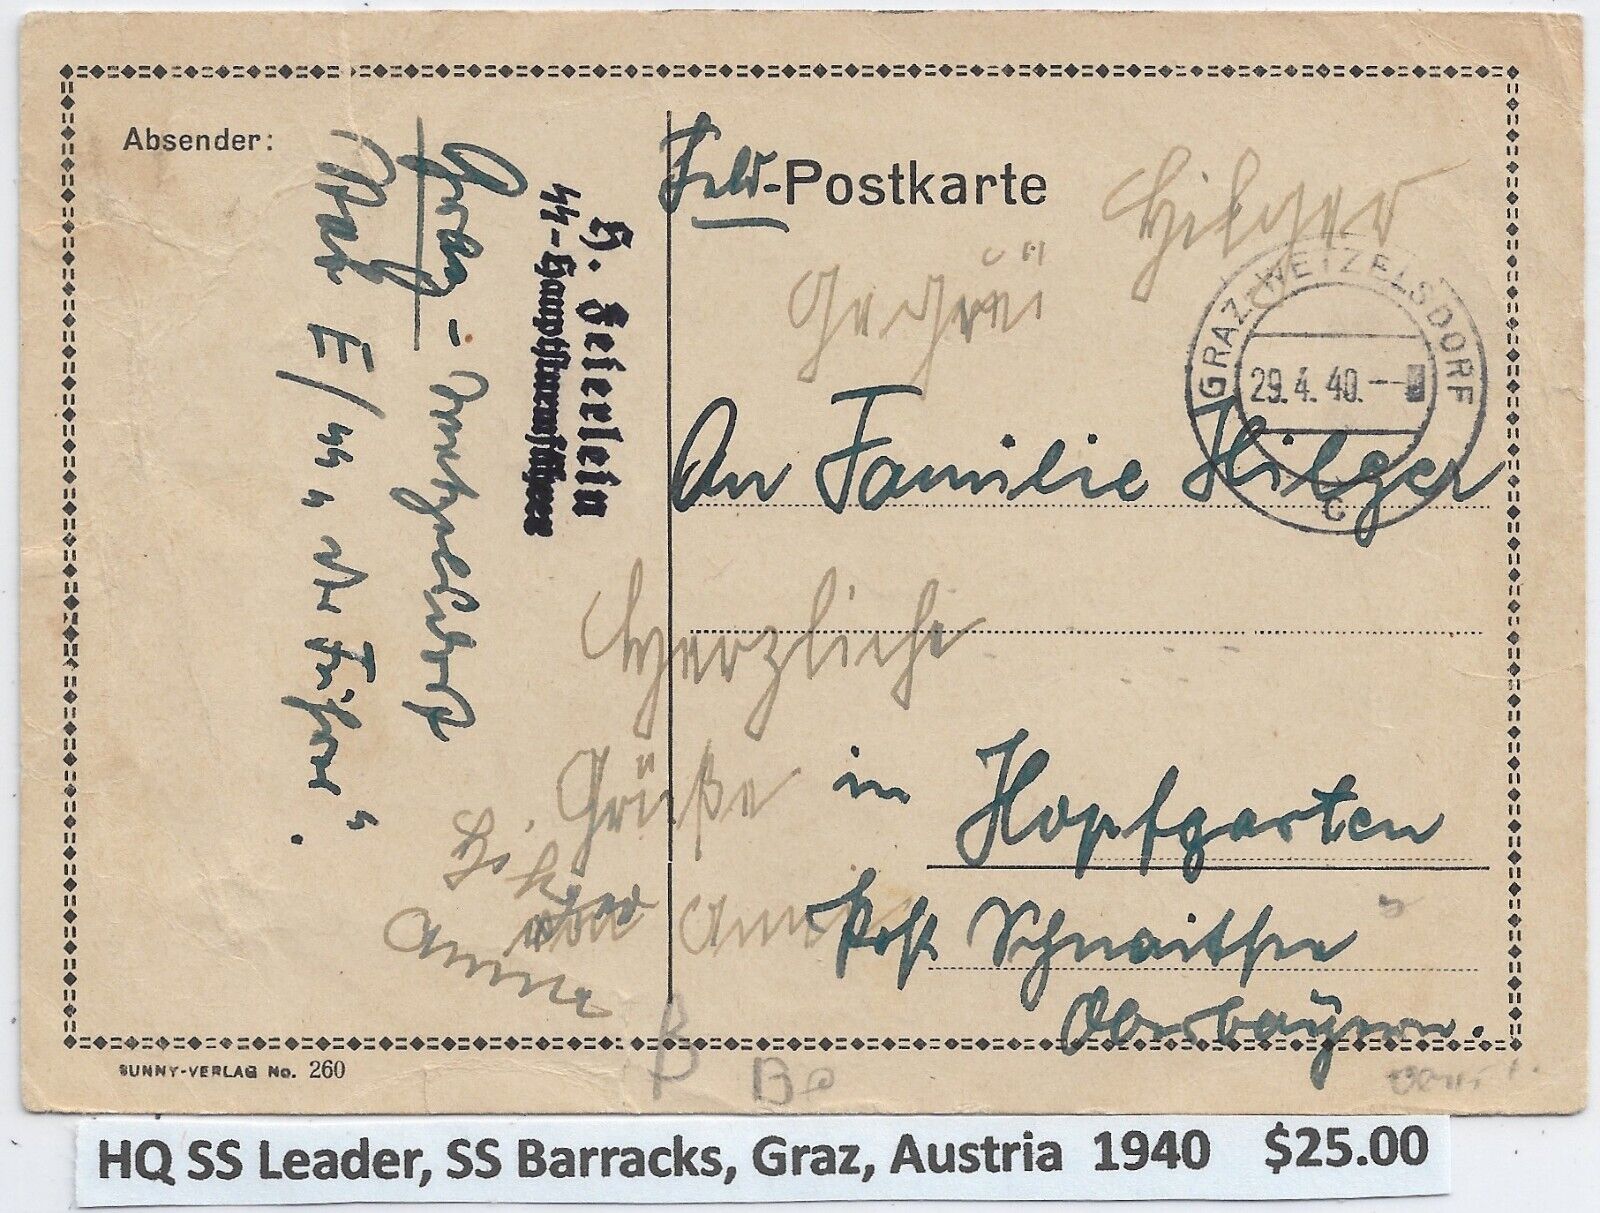 Absender:
H. Feierlein
SS-Hauptsturmführer
Graz-Wetzelsdorf
E/SS „Der Führer"
Feld-Postkarte
Hilger
GRAZ-WETZELSDORF
29.4.40.
c
An Familie Hilger
Herzliche
Grüße
in Hopfgarten
Post Schnaitsee
Oberbayern.
Anna
Anna
B
B
SUNNY-VERLAG No. 260
HQ SS Leader, SS Barracks, Graz, Austria 1940 $25.00